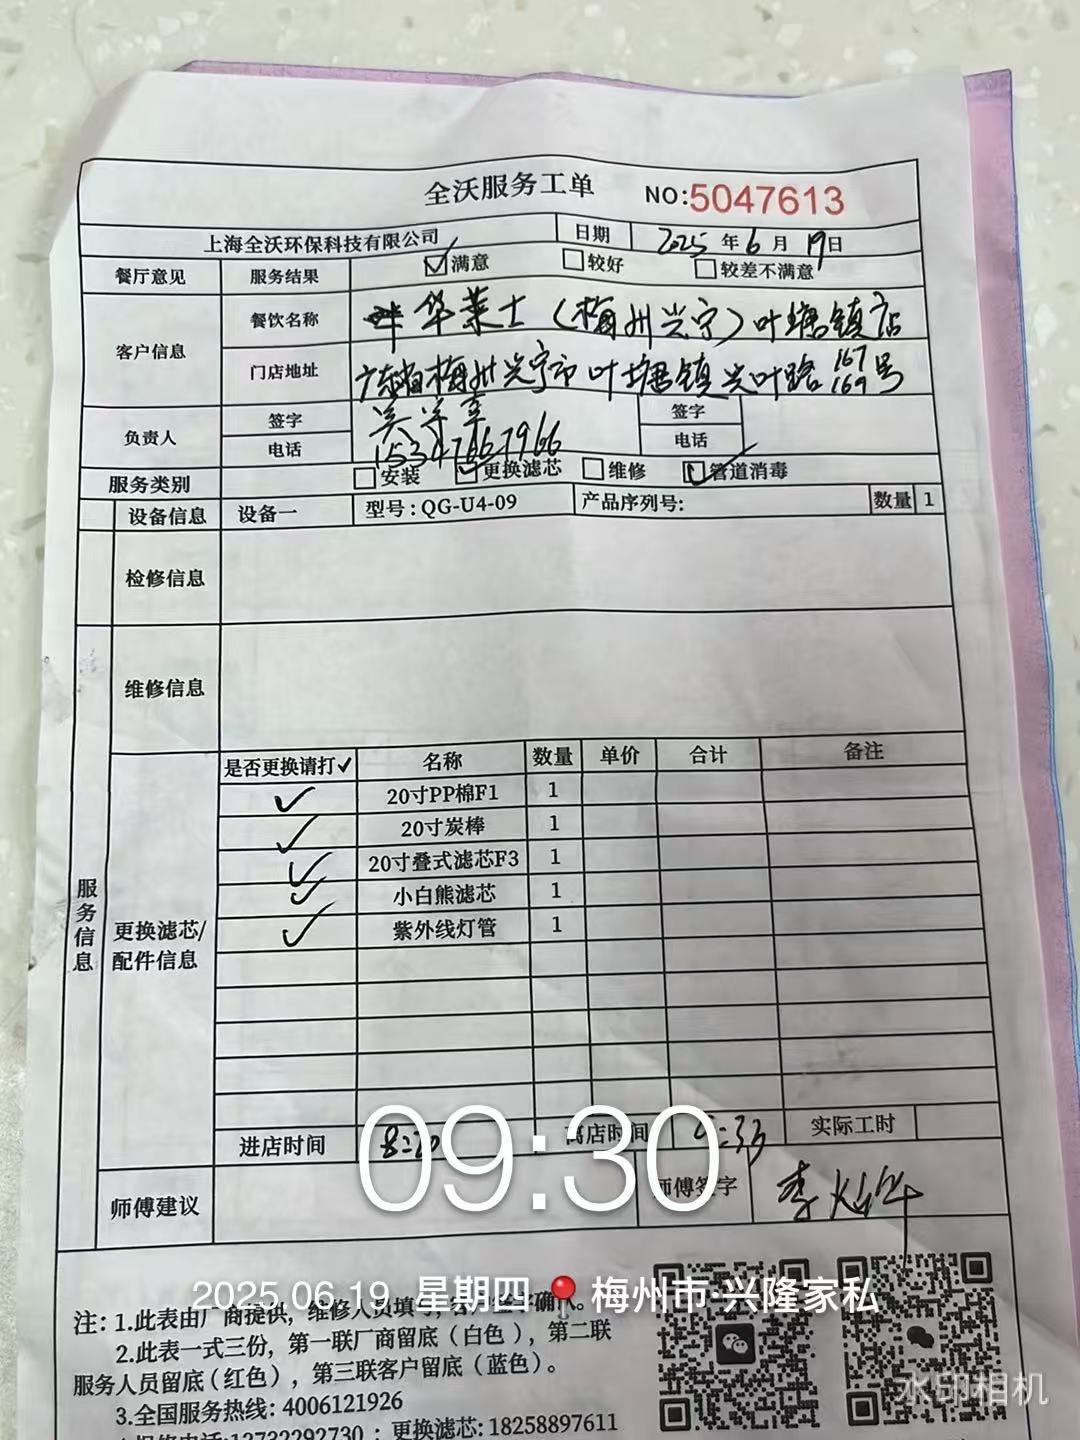 全沃服务工单 NO:5047613
上海全沃环保科技有限公司 日期 2025年6月19日
餐厅意见 服务结果 ☑满意 □较好 □较差不满意
客户信息 餐饮名称 华莱士（梅州兴宁）叶塘镇店
门店地址 广东省梅州兴宁市叶塘镇兴叶路167 169号
负责人 签字 签字
电话 15347667966 电话
服务类别 □安装 ☑更换滤芯 □维修 ☑管道消毒
设备信息 设备一 型号：QG-U4-09 产品序列号: 数量 1
检修信息
维修信息
服务信息
更换滤芯/配件信息
是否更换请打✓ 名称 数量 单价 合计 备注
✓ 20寸PP棉F1 1
✓ 20寸炭棒 1
✓ 20寸叠式滤芯F3 1
✓ 小白熊滤芯 1
✓ 紫外线灯管 1
进店时间 离店时间 实际工时
09:30
师傅建议 师傅签字
2025.06.19 星期四 梅州市·兴隆家私
注：1.此表由厂商提供，维修人员填
2.此表一式三份，第一联厂商留底（白色），第二联
服务人员留底（红色），第三联客户留底（蓝色）。
3.全国服务热线: 4006121926
13732292730 ；更换滤芯: 18258897611
水印相机